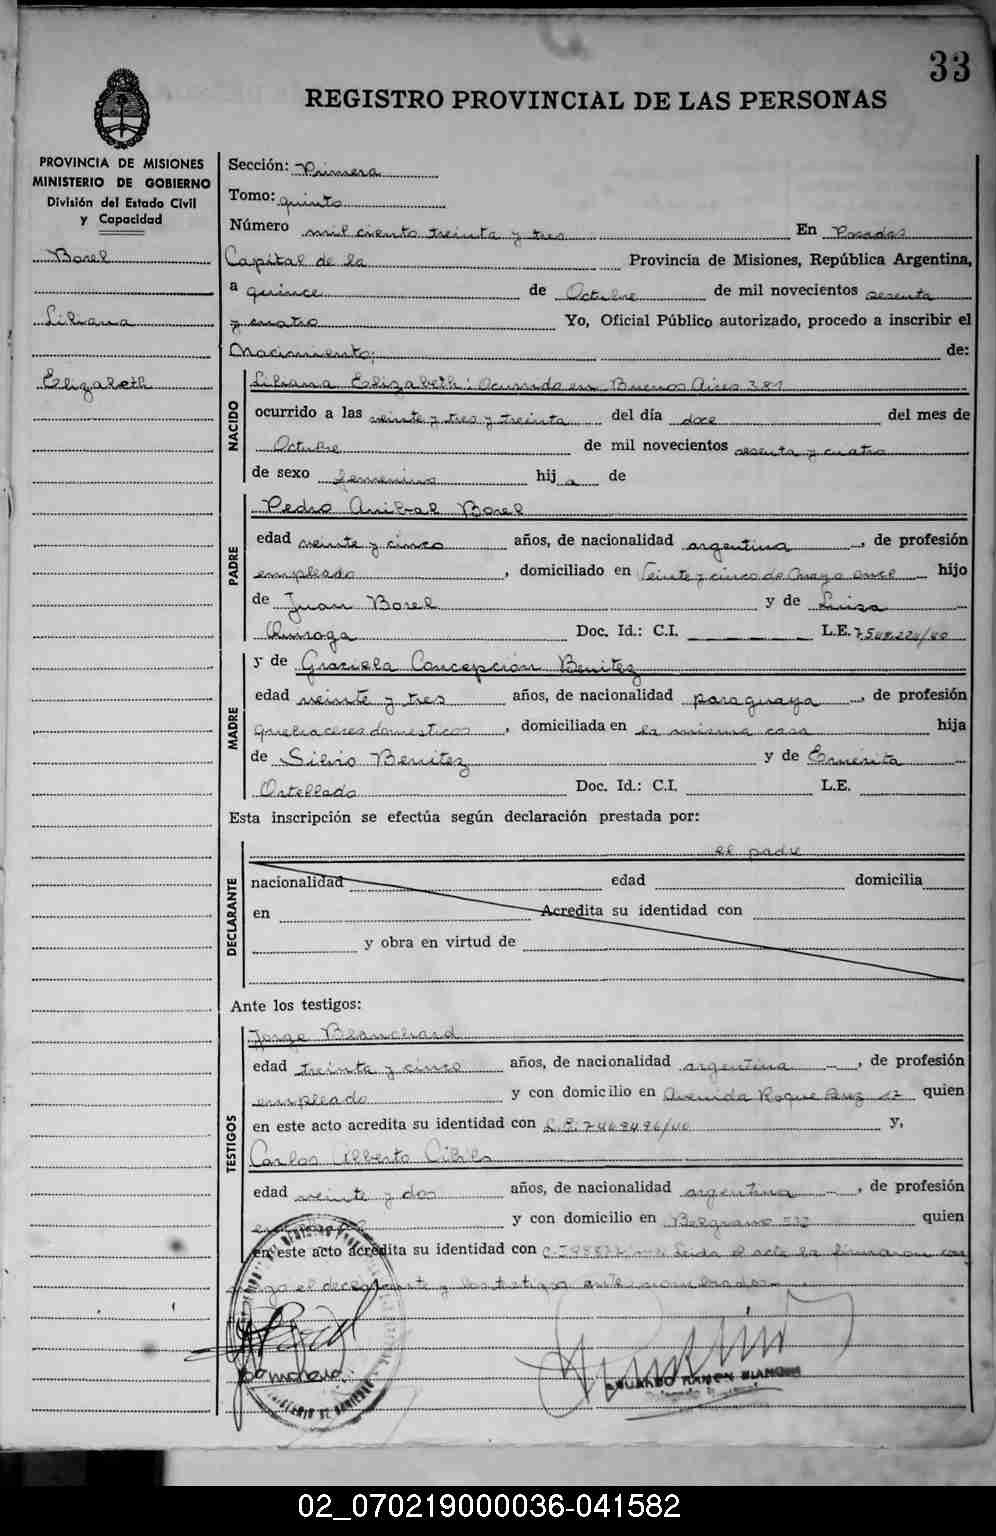 33
REGISTRO PROVINCIAL DE LAS PERSONAS
PROVINCIA DE MISIONES
MINISTERIO DE GOBIERNO
División del Estado Civil
y Capacidad
Borel
Liliana
Elizabeth
Sección: Primera
Tomo: quinto
Número mil ciento treinta y tres En Posadas
Capital de la Provincia de Misiones, República Argentina,
a quince de Octubre de mil novecientos sesenta
y cuatro Yo, Oficial Público autorizado, procedo a inscribir el
Nacimiento; de:
NACIDO
Liliana Elizabeth: Ocurrido en Buenos Aires 381
ocurrido a las veinte y tres y treinta del día doce del mes de
Octubre de mil novecientos sesenta y cuatro
de sexo femenino hij a de
PADRE
Pedro Anibal Borel
edad veinte y cinco años, de nacionalidad argentina, de profesión
empleado, domiciliado en Veinte y cinco de Mayo once hijo
de Juan Borel y de Luisa
Quiroga Doc. Id.: C.I. L.E. 7.548.224/40
MADRE
y de Graciela Concepción Benitez
edad veinte y tres años, de nacionalidad paraguaya, de profesión
quehaceres domesticos, domiciliada en la misma casa hija
de Silvio Benitez y de Emerita
Ortellado Doc. Id.: C.I. L.E.
Esta inscripción se efectúa según declaración prestada por:
el padre
DECLARANTE
nacionalidad edad domicilia
en Acredita su identidad con
y obra en virtud de
Ante los testigos:
TESTIGOS
Jorge Blanchard
edad treinta y cinco años, de nacionalidad argentina, de profesión
empleado y con domicilio en Avenida Roque 12 quien
en este acto acredita su identidad con L.E. 7468496/40 y,
Carlos Alberto
edad veinte y dos años, de nacionalidad argentina, de profesión
y con domicilio en Belgrano quien
en este acto acredita su identidad con Leida el acta la firmaron con
migo el declarante y los testigos ante nombrados
EDUARDO RAMON BIANCHI
02_070219000036-041582